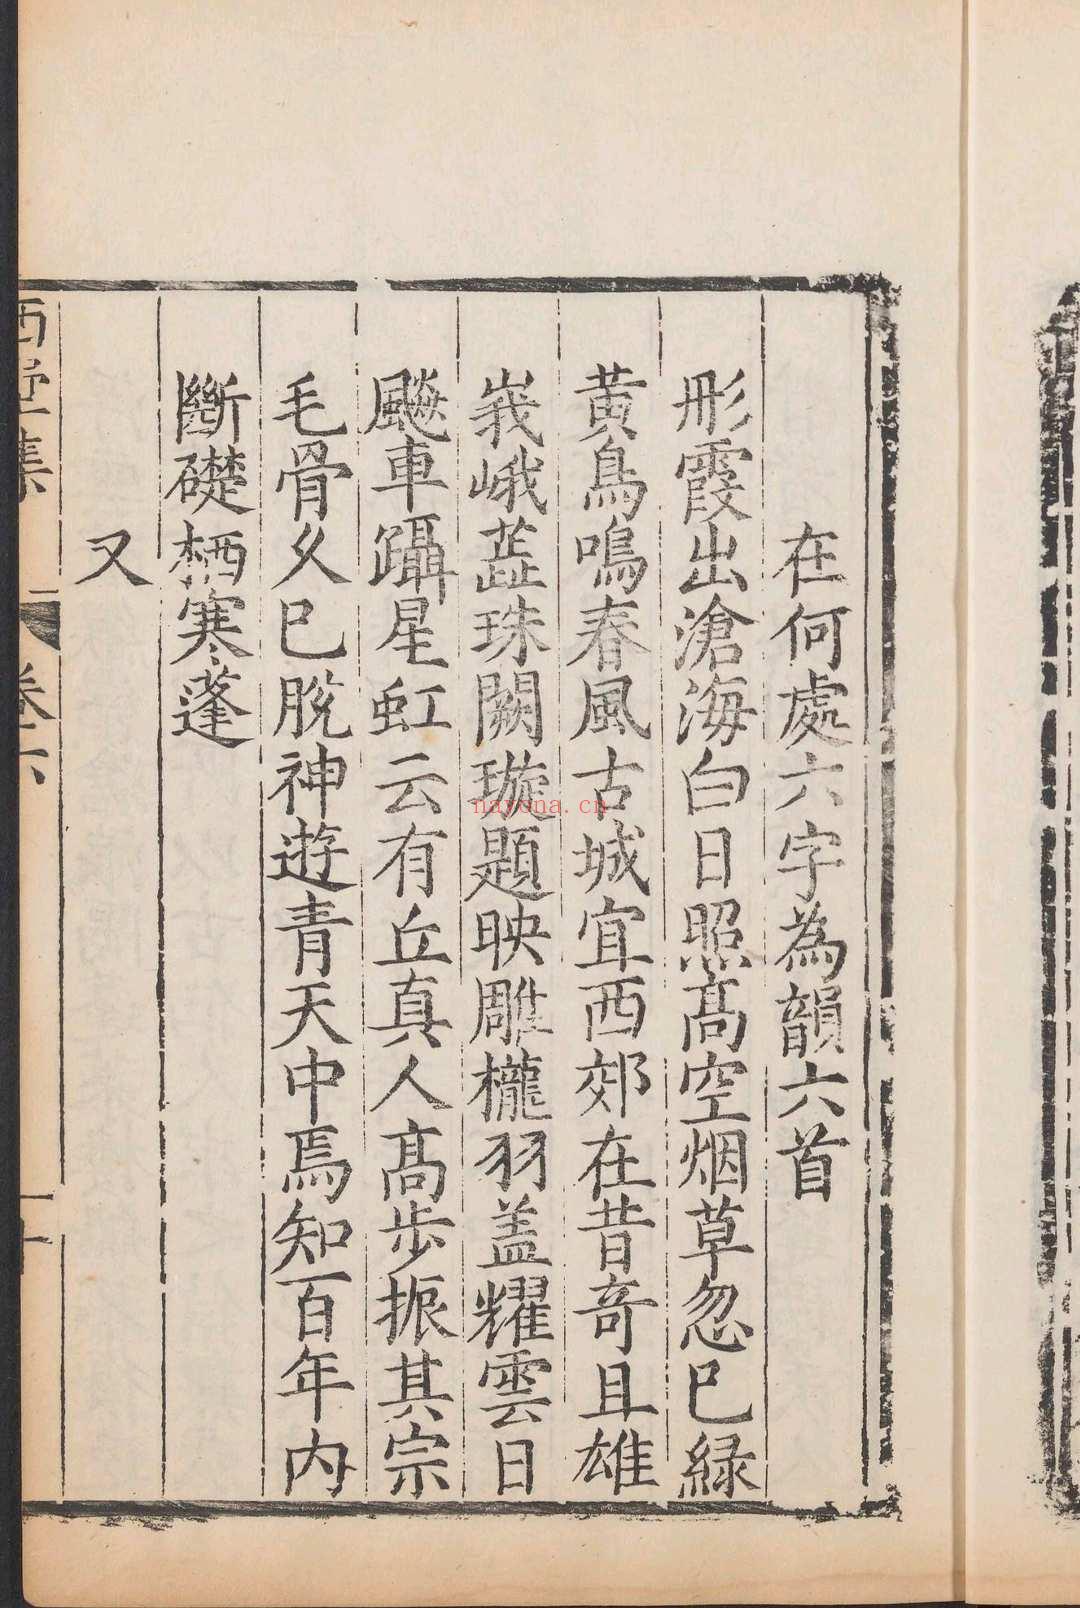 在何處六字為韻六首
彤霞出滄海白日照高空烟草忽已綠
黃鳥鳴春風古城宜西郊在昔奇且雄
峩峨蘂珠闕璇題映雕櫳羽盖耀雲日
飈車躡星虹云有丘真人高步振其宗
毛骨久已脫神遊青天中焉知百年內
斷礎栖寒蓬
又
西 集
卷六
nayona.cn